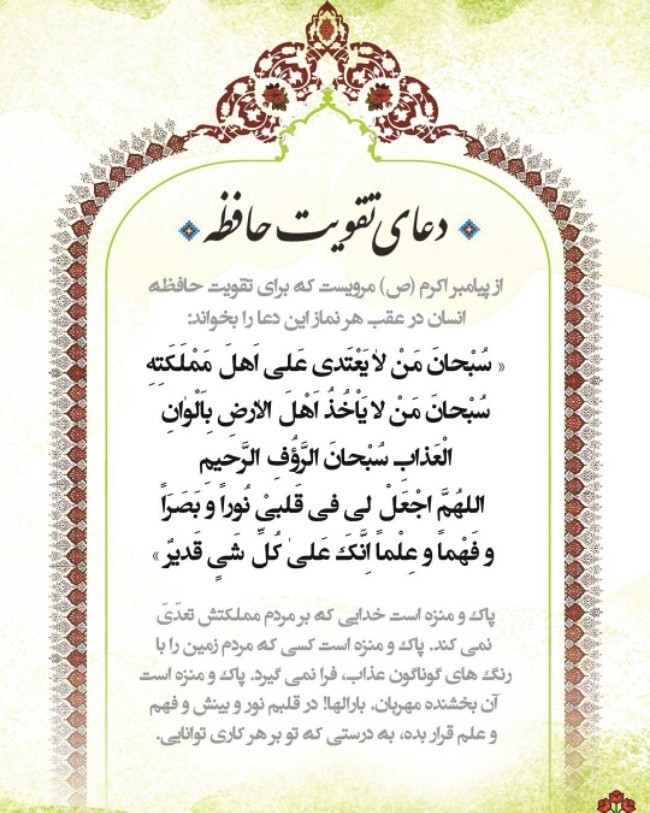 دعای تقویت حافظه
از پیامبر اکرم (ص) مرویست که برای تقویت حافظه
انسان در عقب هر نماز این دعا را بخواند:
« سُبْحانَ مَنْ لایَعْتَدی عَلی اَهلَ مَمْلَکَتِهِ
سُبْحانَ مَنْ لا یَأخُذُ اَهْلَ الارضِ بِاَلْوانِ
الْعَذابِ سُبْحانَ الرَّؤُفِ الرَّحیمِ
اللهُمَّ اجْعَلْ لی فی قَلبیْ نُوراً و بَصَراً
و فَهْماً و عِلْماً اِنَّکَ عَلیٰ کُلِّ شَیٍ قَدیرٌ »
پاک و منزه است خدایی که بر مردم مملکتش تعدّی
نمی کند. پاک و منزه است کسی که مردم زمین را با
رنگ های گوناگون عذاب، فرا نمی گیرد. پاک و منزه است
آن بخشنده مهربان. بارالها! در قلبم نور و بینش و فهم
و علم قرار بده، به درستی که تو بر هر کاری توانایی.